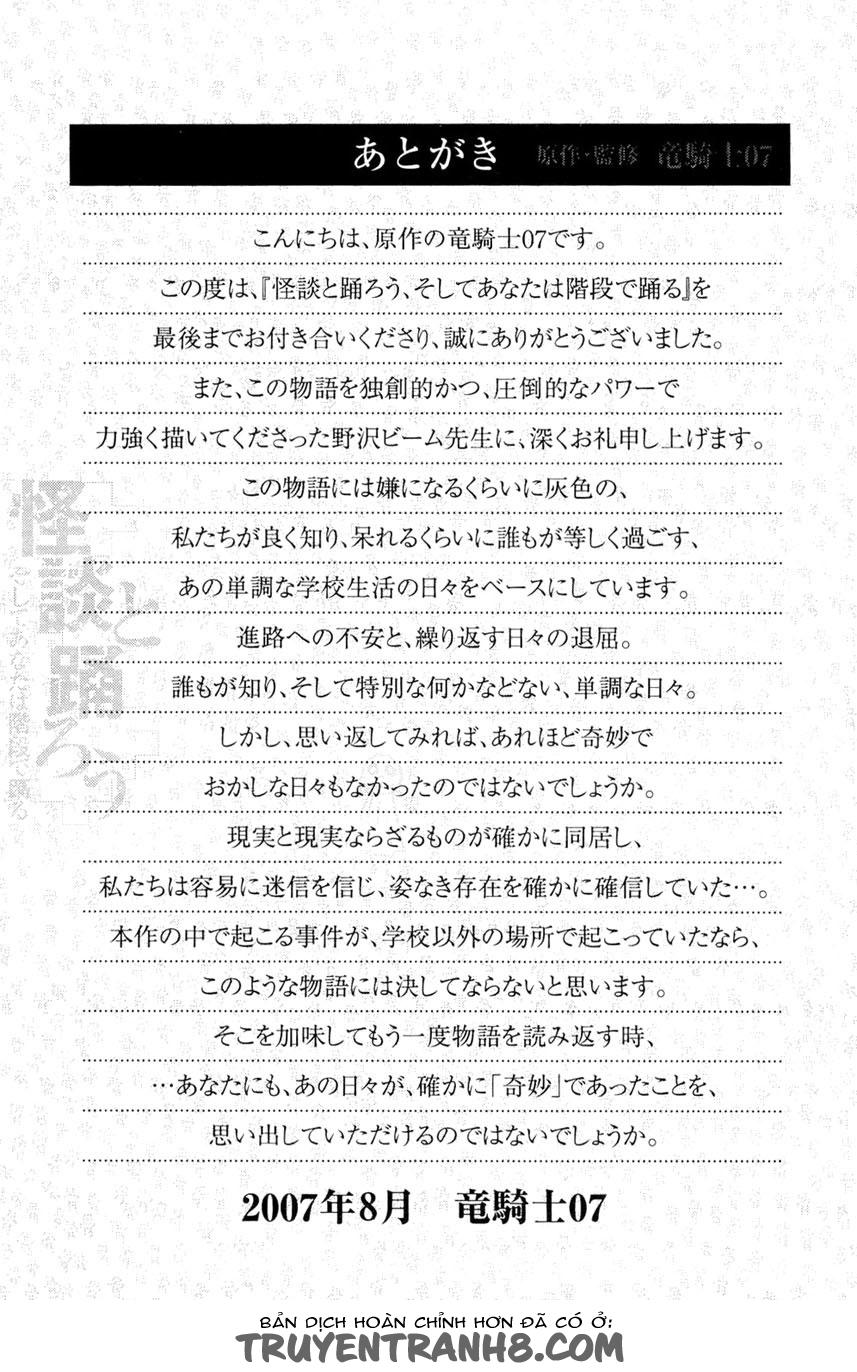 あとがき 原作・監修 竜騎士07
こんにちは、原作の竜騎士07です。
この度は、『怪談と踊ろう、そしてあなたは階段で踊る』を
最後までお付き合いくださり、誠にありがとうございました。
また、この物語を独創的かつ、圧倒的なパワーで
力強く描いてくださった野沢ビーム先生に、深くお礼申し上げます。
この物語には嫌になるくらいに灰色の、
私たちが良く知り、呆れるくらいに誰もが等しく過ごす、
あの単調な学校生活の日々をベースにしています。
進路への不安と、繰り返す日々の退屈。
誰もが知り、そして特別な何かなどない、単調な日々。
しかし、思い返してみれば、あれほど奇妙で
おかしな日々もなかったのではないでしょうか。
現実と現実ならざるものが確かに同居し、
私たちは容易に迷信を信じ、姿なき存在を確かに確信していた…。
本作の中で起こる事件が、学校以外の場所で起こっていたなら、
このような物語には決してならないと思います。
そこを加味してもう一度物語を読み返す時、
…あなたにも、あの日々が、確かに「奇妙」であったことを、
思い出していただけるのではないでしょうか。
2007年8月 竜騎士07
怪談と踊ろう
そしてあなたは階段で踊る
BẢN DỊCH HOÀN CHỈNH HƠN ĐÃ CÓ Ở:
TRUYENTRANH8.COM